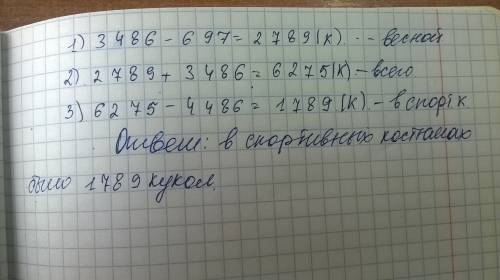 1) 3 486 - 697 = 2 789 (к) -- весной
2) 2 789 + 3 486 = 6 275 (к) - всего
3) 6 275 - 4 486 = 1 789 (к) - в спорт к.
Ответ: в спортивных костюмах
было 1 789 кукол.